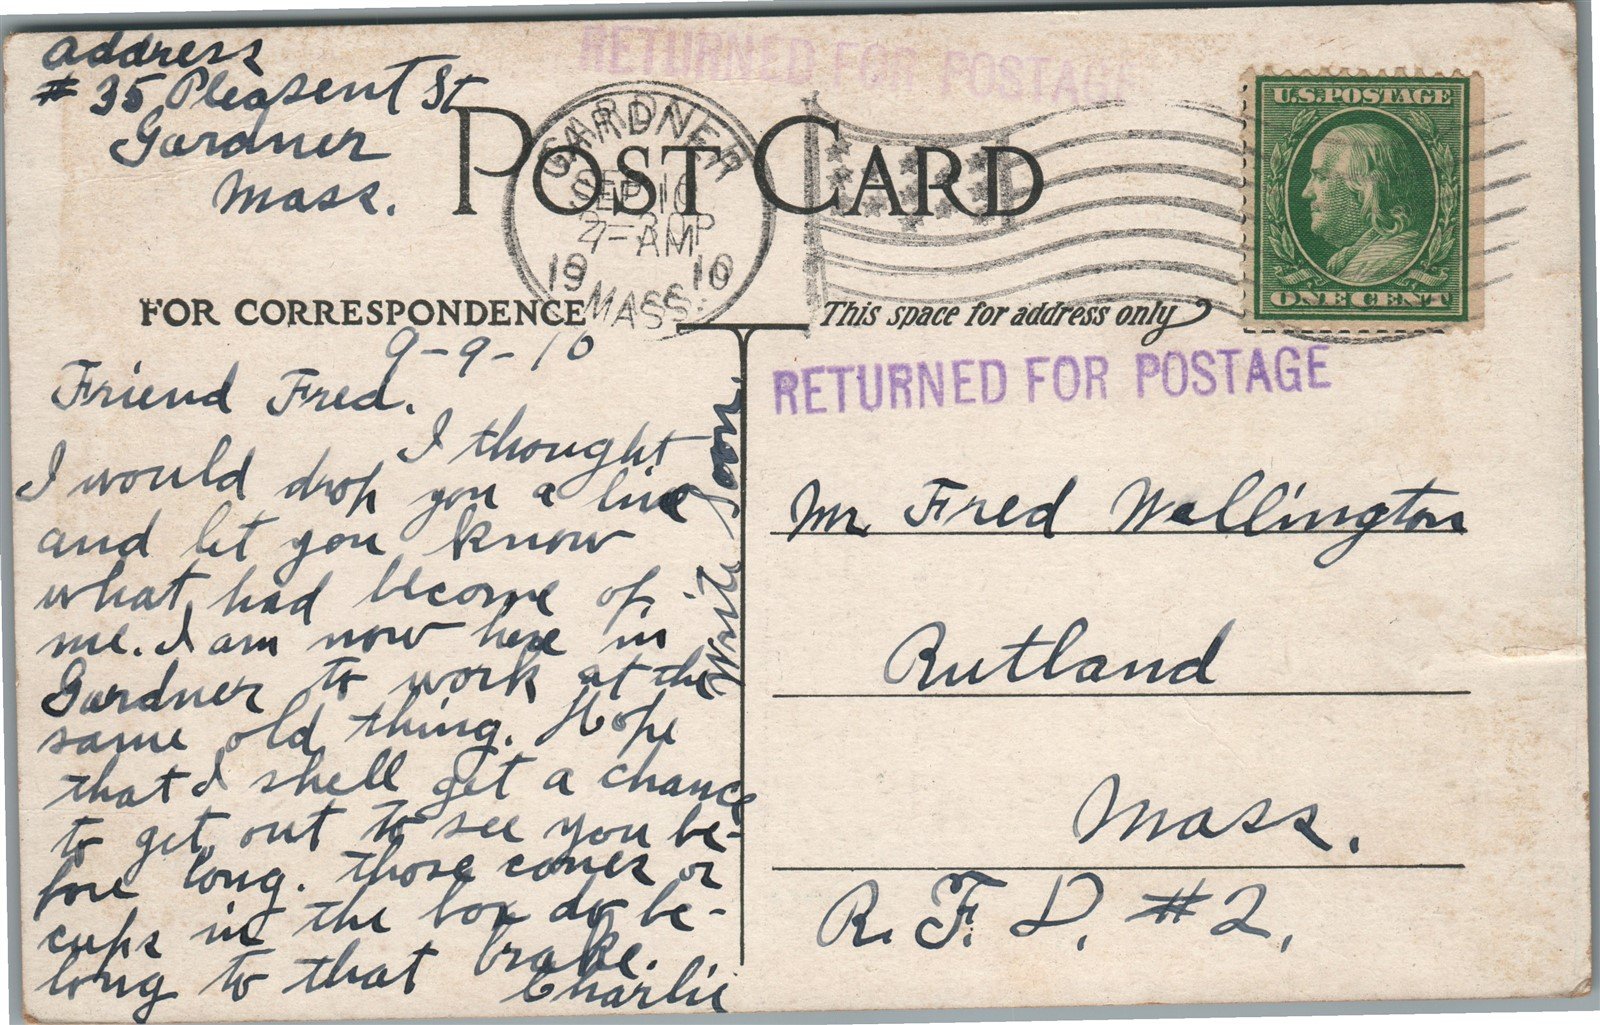 address
# 35 Pleasent St
Gardner
Mass.
RETURNED FOR POSTAGE
POST CARD
GARDNER
SEP 10
1910
MASS.
U.S. POSTAGE
ONE CENT
FOR CORRESPONDENCE
This space for address only
RETURNED FOR POSTAGE
9-9-10
Friend Fred.
I thought
I would drop you a line
and let you know
what had become of
me. I am now here in
Gardner to work at the
same old thing. Hope
that I shell get a chance
to get out to see you be-
fore long. those cones or
cups in the box do be-
long to that brake.
Charlie
Write soon.
Mr Fred Wellington
Rutland
Mass.
R. F. D. #2.